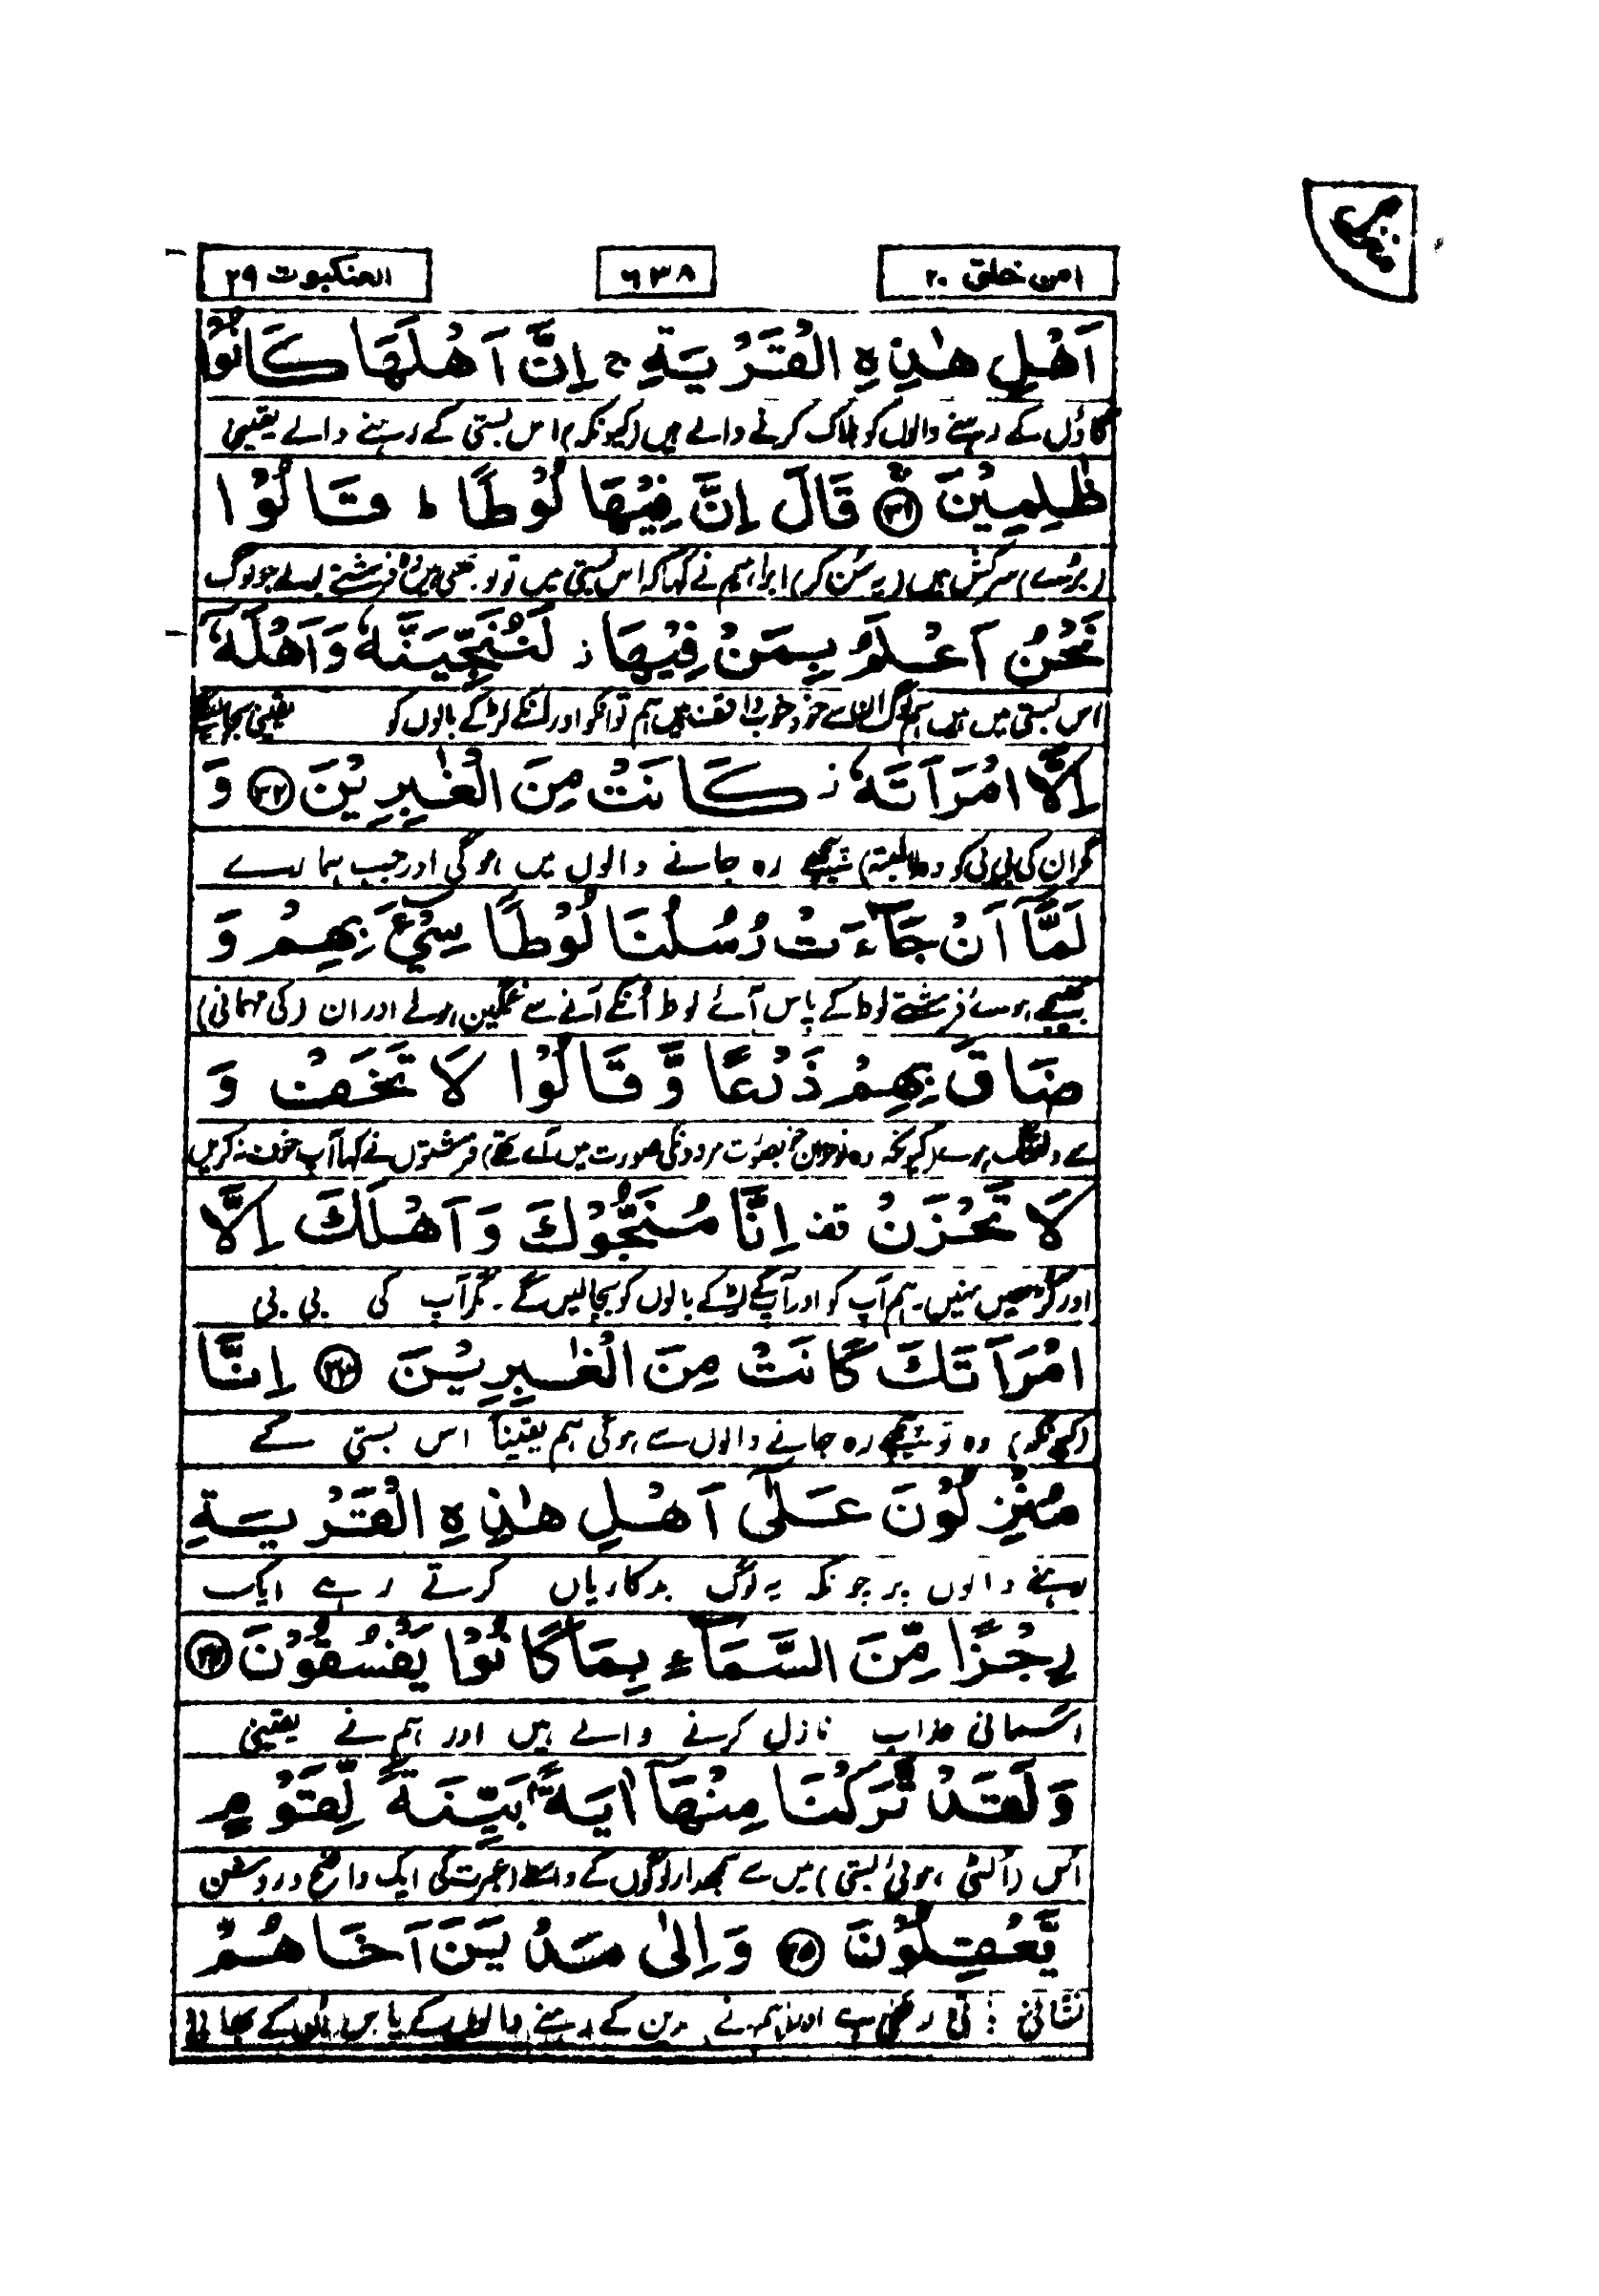 امن خلق ۲۰
۶۳۸
العنکبوت ۲۹
اَهْلِ هٰذِهِ الْقَرْيَةِ ۚ اِنَّ اَهْلَهَا كَانُوْا
گاؤں کے رہنے والوں کو ہلاک کرنے والے ہیں (کیونکہ) اس بستی کے رہنے والے یقینی
ظٰلِمِيْنَ ﴿۳۱﴾ قَالَ اِنَّ فِيْهَا لُوْطًا ؕ قَالُوْا
(بڑے) سرکش ہیں (یہ سن کر) ابراہیم نے کہا کہ اس بستی میں تو لوط بھی ہیں فرشتے بولے جو لوگ
نَحْنُ اَعْلَمُ بِمَنْ فِيْهَا ز لَنُنَجِّيَنَّهٗ وَاَهْلَهٗٓ
اس بستی میں ہیں ہم لوگ ان سے خوب واقف ہیں ہم تو انکو اور انکے لڑکے بالوں کو یقینی بچالینگے
اِلَّا امْرَاَتَهٗ ز كَانَتْ مِنَ الْغٰبِرِيْنَ ﴿۳۲﴾ وَ
مگر ان کی بی بی کو وہ (البتہ) پیچھے رہ جانے والوں میں ہوگی اور جب ہمارے
لَمَّآ اَنْ جَآءَتْ رُسُلُنَا لُوْطًا سِيْٓءَ بِهِمْ وَ
بھیجے ہوئے فرشتے لوط کے پاس آئے لوط انکے آنے سے غمگین ہوئے اور ان (کی مہمانی)
ضَاقَ بِهِمْ ذَرْعًا وَّ قَالُوْا لَا تَخَفْ وَ
سے دلتنگ ہوئے (کیونکہ وہ نوجوان خوبصورت مردونکی صورت میں آئے تھے) فرشتوں نے کہا آپ خوف نہ کریں
لَا تَحْزَنْ قف اِنَّا مُنَجُّوْكَ وَ اَهْلَكَ اِلَّا
اور کڑھیں نہیں۔ ہم آپ کو اور آپکے لڑکے بالوں کو بچالیں گے۔ مگر آپ کی بی بی
امْرَاَتَكَ كَانَتْ مِنَ الْغٰبِرِيْنَ ﴿۳۳﴾ اِنَّا
(کیونکہ) وہ تو پیچھے رہ جانے والوں سے ہوگی ہم یقیناً اس بستی کے
مُنْزِلُوْنَ عَلٰٓى اَهْلِ هٰذِهِ الْقَرْيَةِ
رہنے والوں پر چونکہ یہ لوگ بدکاریاں کرتے رہے ایک
رِجْزًا مِّنَ السَّمَآءِ بِمَا كَانُوْا يَفْسُقُوْنَ ﴿۳۴﴾
آسمانی عذاب نازل کرنے والے ہیں اور ہم نے یقینی
وَ لَقَدْ تَّرَكْنَا مِنْهَآ اٰيَةًۢ بَيِّنَةً لِّقَوْمٍ
اُس (اُلٹی ہوئی بستی) میں سے سمجھدار لوگوں کے واسطے (عبرت کی) ایک واضح و روشن
يَّعْقِلُوْنَ ﴿۳۵﴾ وَ اِلٰى مَدْيَنَ اَخَاهُمْ
نشانی باقی رکھی ہے اور ہم نے مدین کے رہنے والوں کے پاس اُن کے بھائی